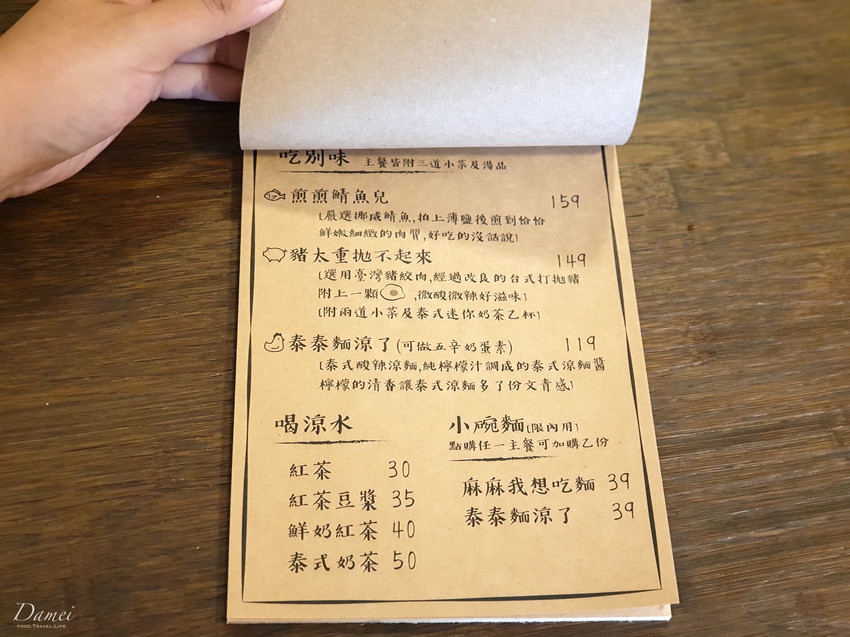 吃別味 主餐皆附三道小菜及湯品
煎煎鯖魚兒 159
[嚴選挪威鯖魚,拍上薄鹽後煎到恰恰
鮮嫩細緻的肉質,好吃的沒話說]
豬太重拋不起來 149
[選用臺灣豬絞肉,經過改良的台式打拋豬
附上一顆 ,微酸微辣好滋味]
[附兩道小菜及泰式迷你奶茶乙杯]
泰泰麵涼了(可做五辛奶蛋素) 119
[泰式酸辣涼麵,純檸檬汁調成的泰式涼麵醬
檸檬的清香讓泰式涼麵多了份文青感]
喝涼水
紅茶 30
紅茶豆漿 35
鮮奶紅茶 40
泰式奶茶 50
小碗麵[限內用]
點購任一主餐可加購乙份
麻麻我想吃麵 39
泰泰麵涼了 39
Damei
FOOD.TRAVEL.LIFE